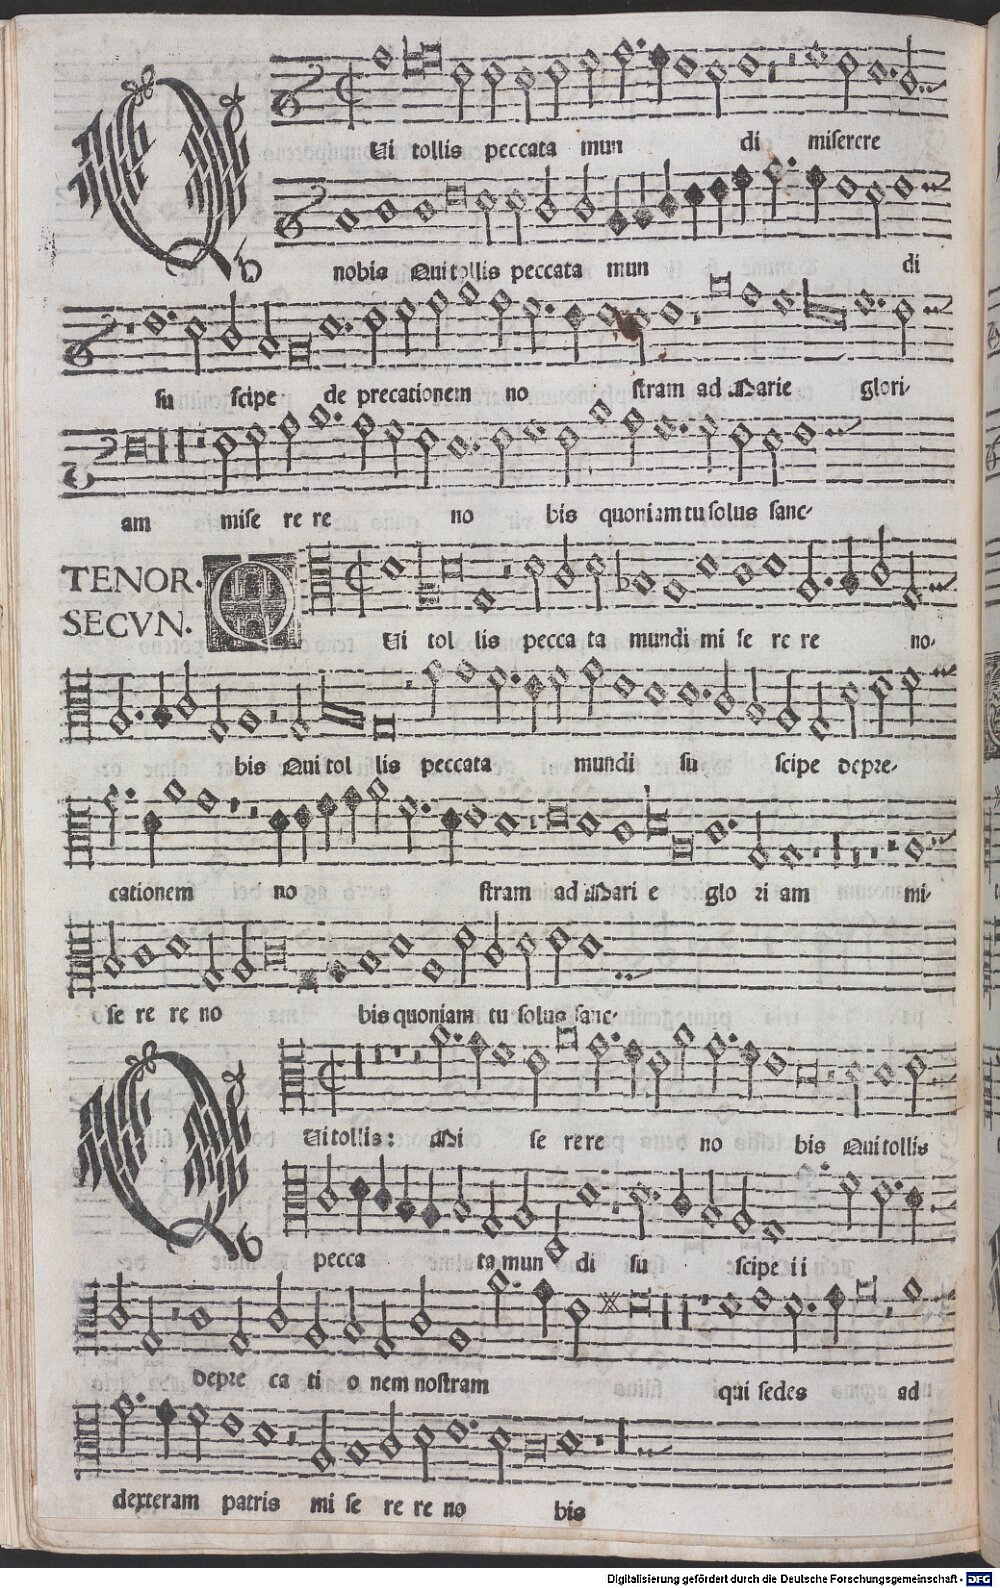 QUi tollis peccata mun di miserere
nobis Qui tollis peccata mun di
su scipe de precationem no stram ad Marie glori-
am mise re re no bis quoniam tu solus sanc-
TENOR.
SECVN.
QUi tol lis pecca ta mundi mi se re re no-
bis Qui tol lis peccata mundi su scipe depre-
cationem no stram ad Mari e glo ri am mi-
se re re no bis quoniam tu solus sanc-
QUi tollis: Mi se re re no bis Qui tollis
pecca ta mun di su scipe ii
depre ca ti o nem nostram qui sedes ad
dexteram patris mi se re re no bis
Digitalisierung gefördert durch die Deutsche Forschungsgemeinschaft - DFG